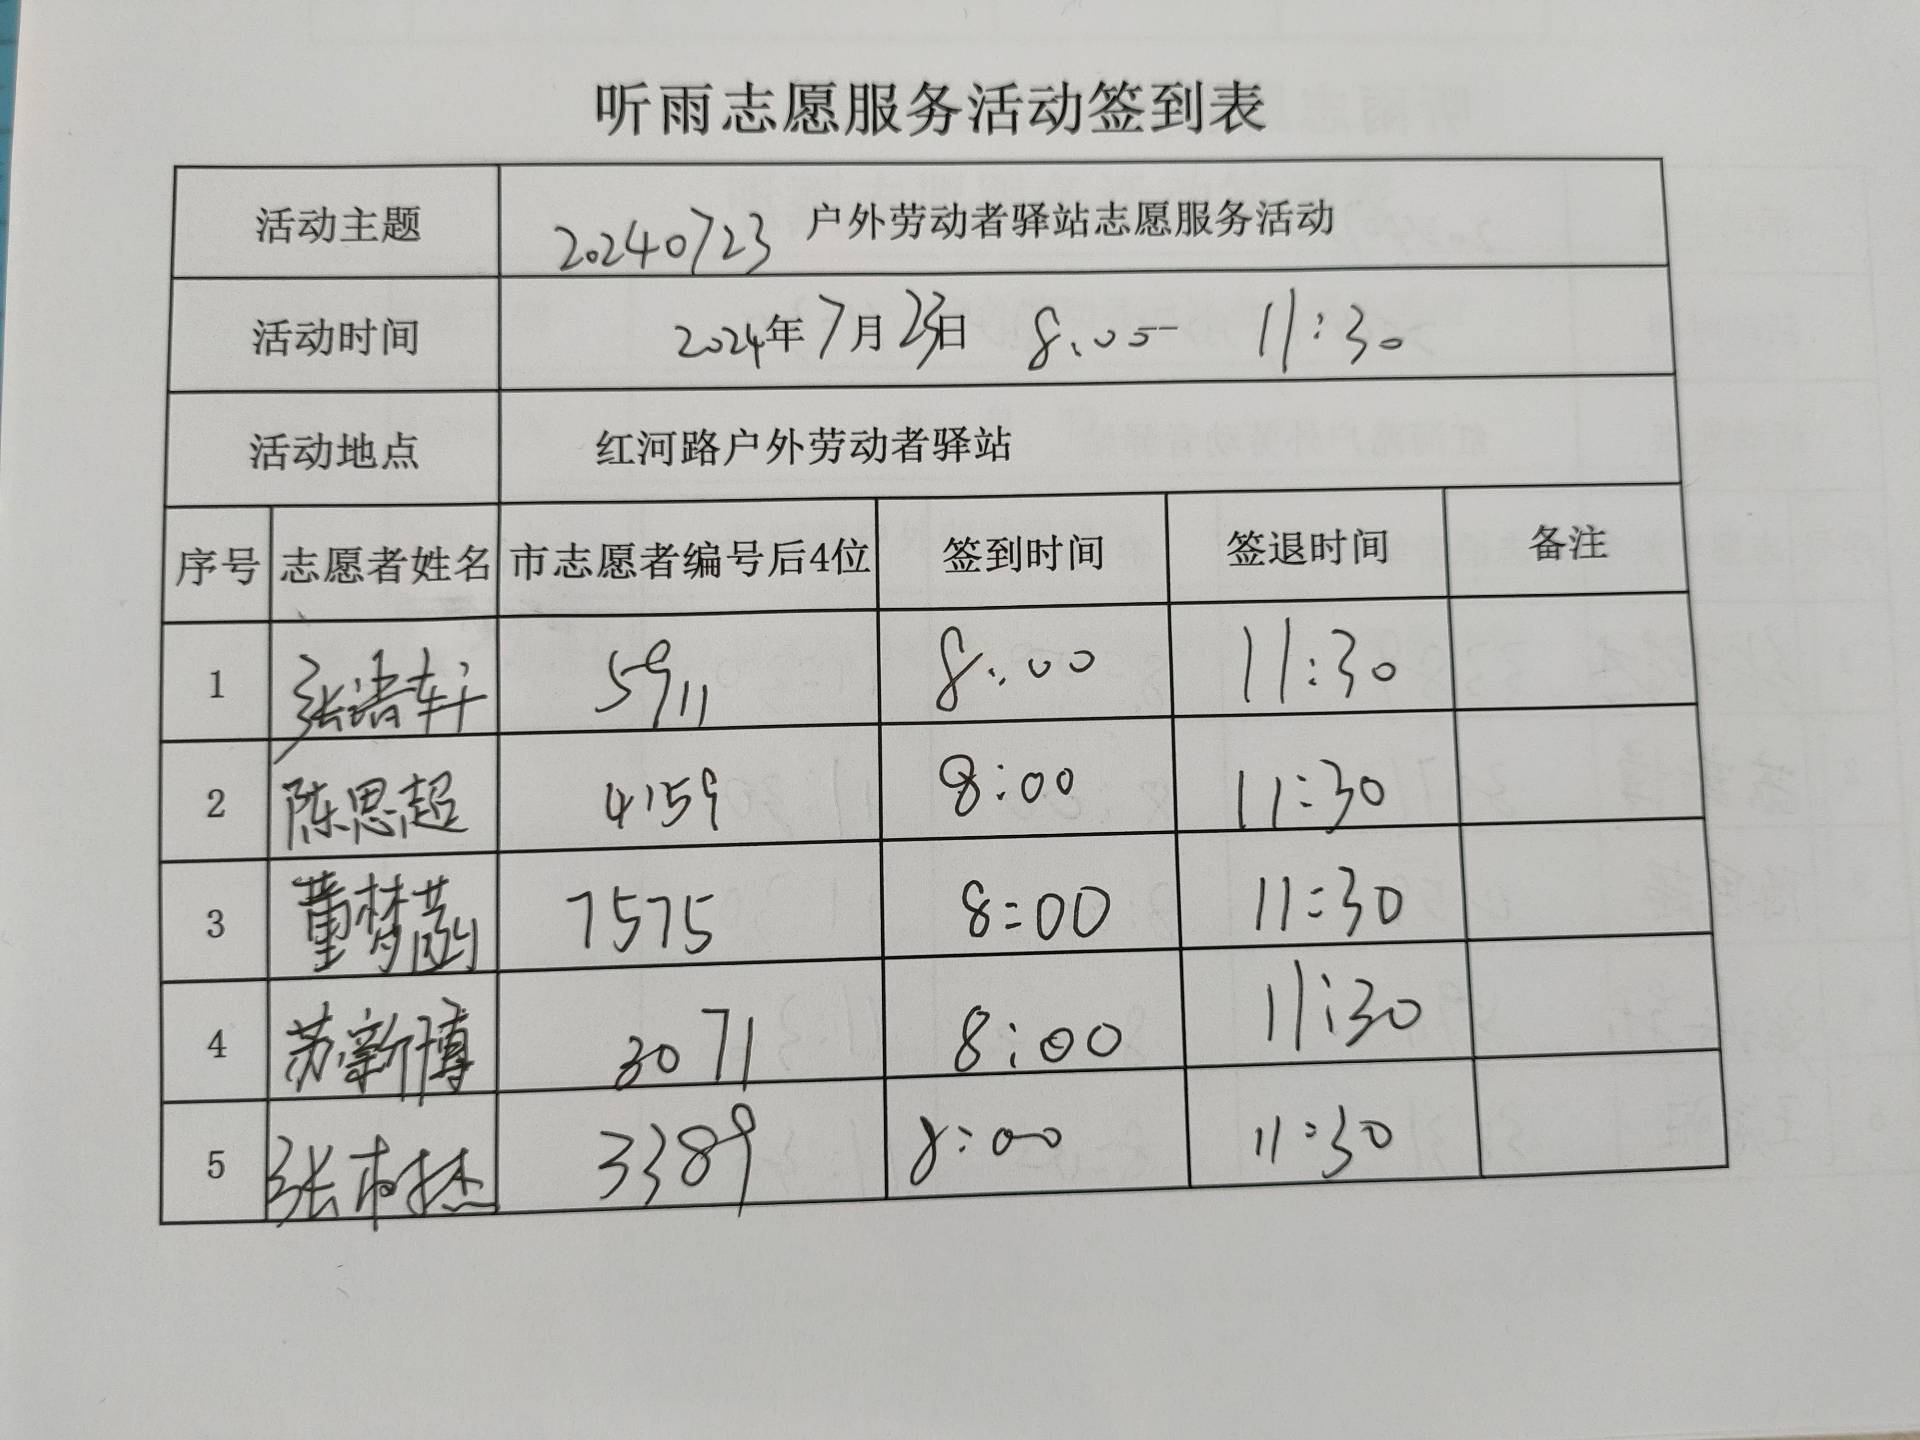 听雨志愿服务活动签到表
活动主题 20240723 户外劳动者驿站志愿服务活动
活动时间 2024年7月23日 8:00- 11:30
活动地点 红河路户外劳动者驿站
序号 志愿者姓名 市志愿者编号后4位 签到时间 签退时间 备注
1 张诸轩 5911 8:00 11:30
2 陈思超 4159 8:00 11:30
3 董梦菡 7575 8:00 11:30
4 苏新博 3071 8:00 11:30
5 张 3389 8:00 11:30